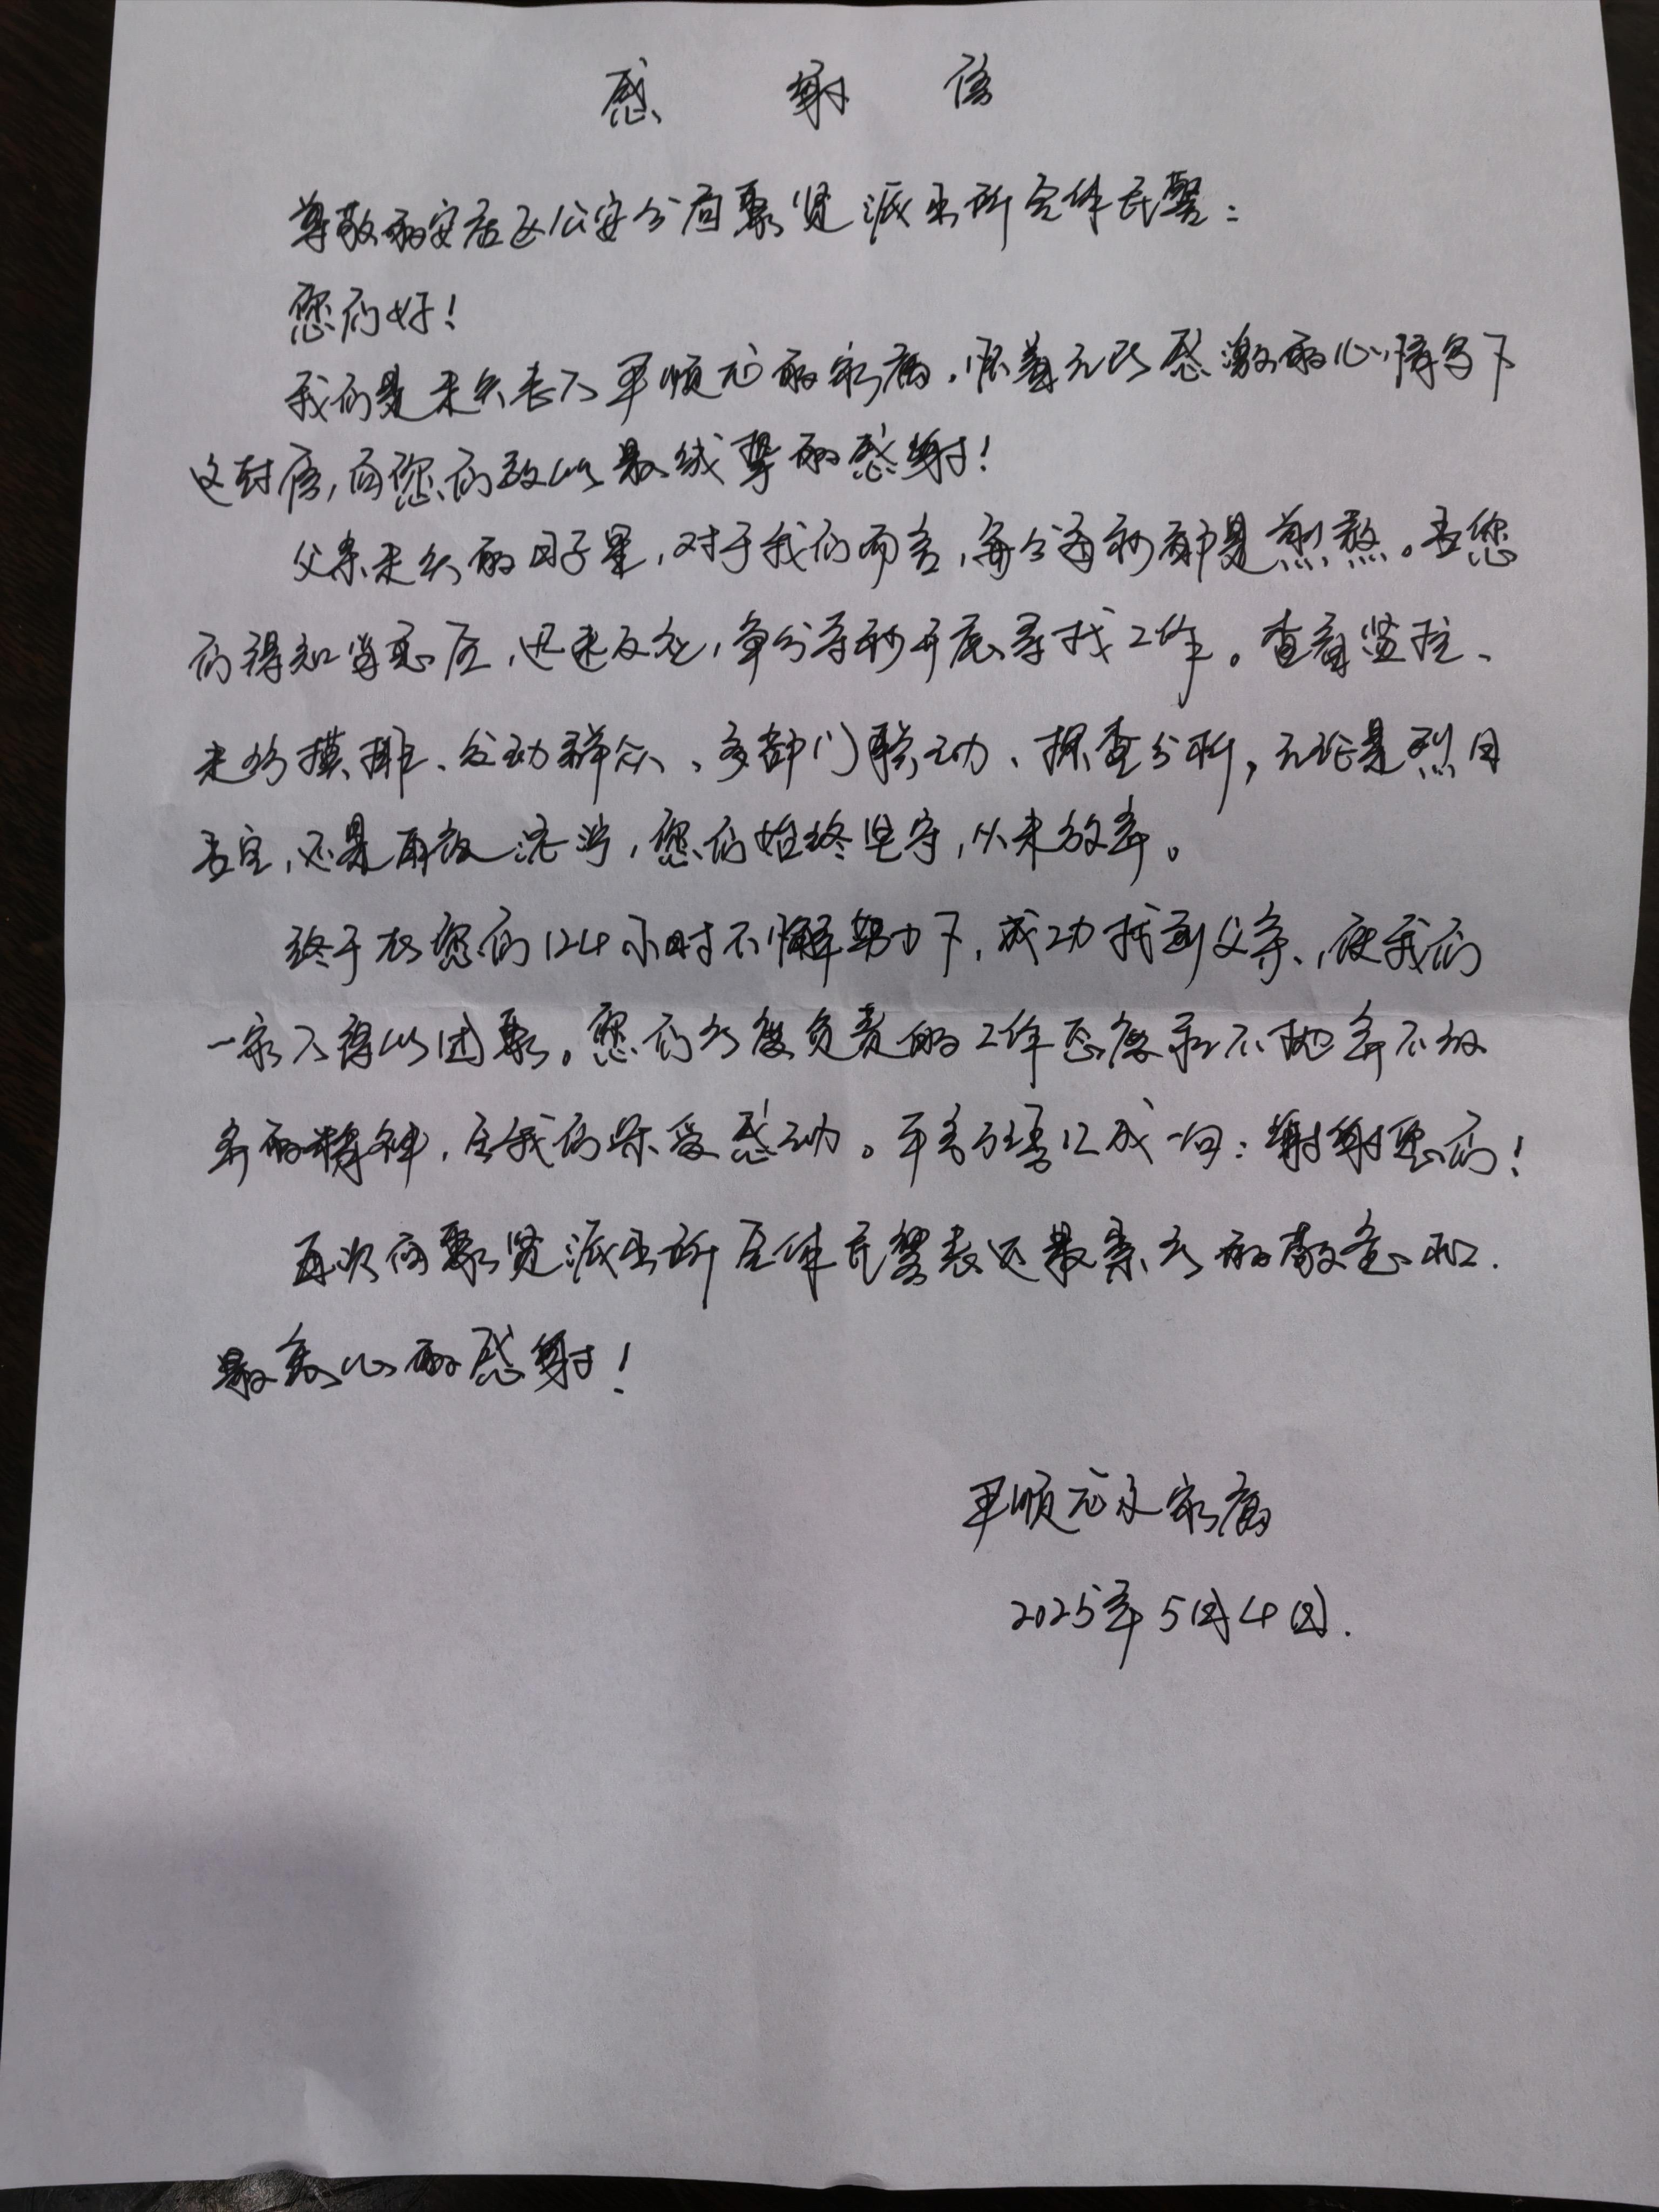 感谢信
尊敬的安居区公安分局聚贤派出所全体民警:
您们好!
我们是走失老人覃顺志的家属,怀着无比感激的心情写下
这封信,向您们致以最诚挚的感谢!
父亲走失的日子里,对于我们而言,每分每秒都是煎熬。在您
们得知消息后,迅速反应,争分夺秒开展寻找工作。查看监控、
走访摸排、发动群众、多部门联动、探查分析,无论是烈日
当空,还是雨夜泥泞,您们始终坚守,从未放弃。
终于在您们124小时不懈努力下,成功找到父亲,使我们
一家人得以团聚。您们高度负责的工作态度和不抛弃不放
弃的精神,令我们深受感动。千言万语汇成一句:谢谢您们!
再次向聚贤派出所全体民警表达最崇高的敬意和
最衷心的感谢!
覃顺志及家属
2025年5月4日.